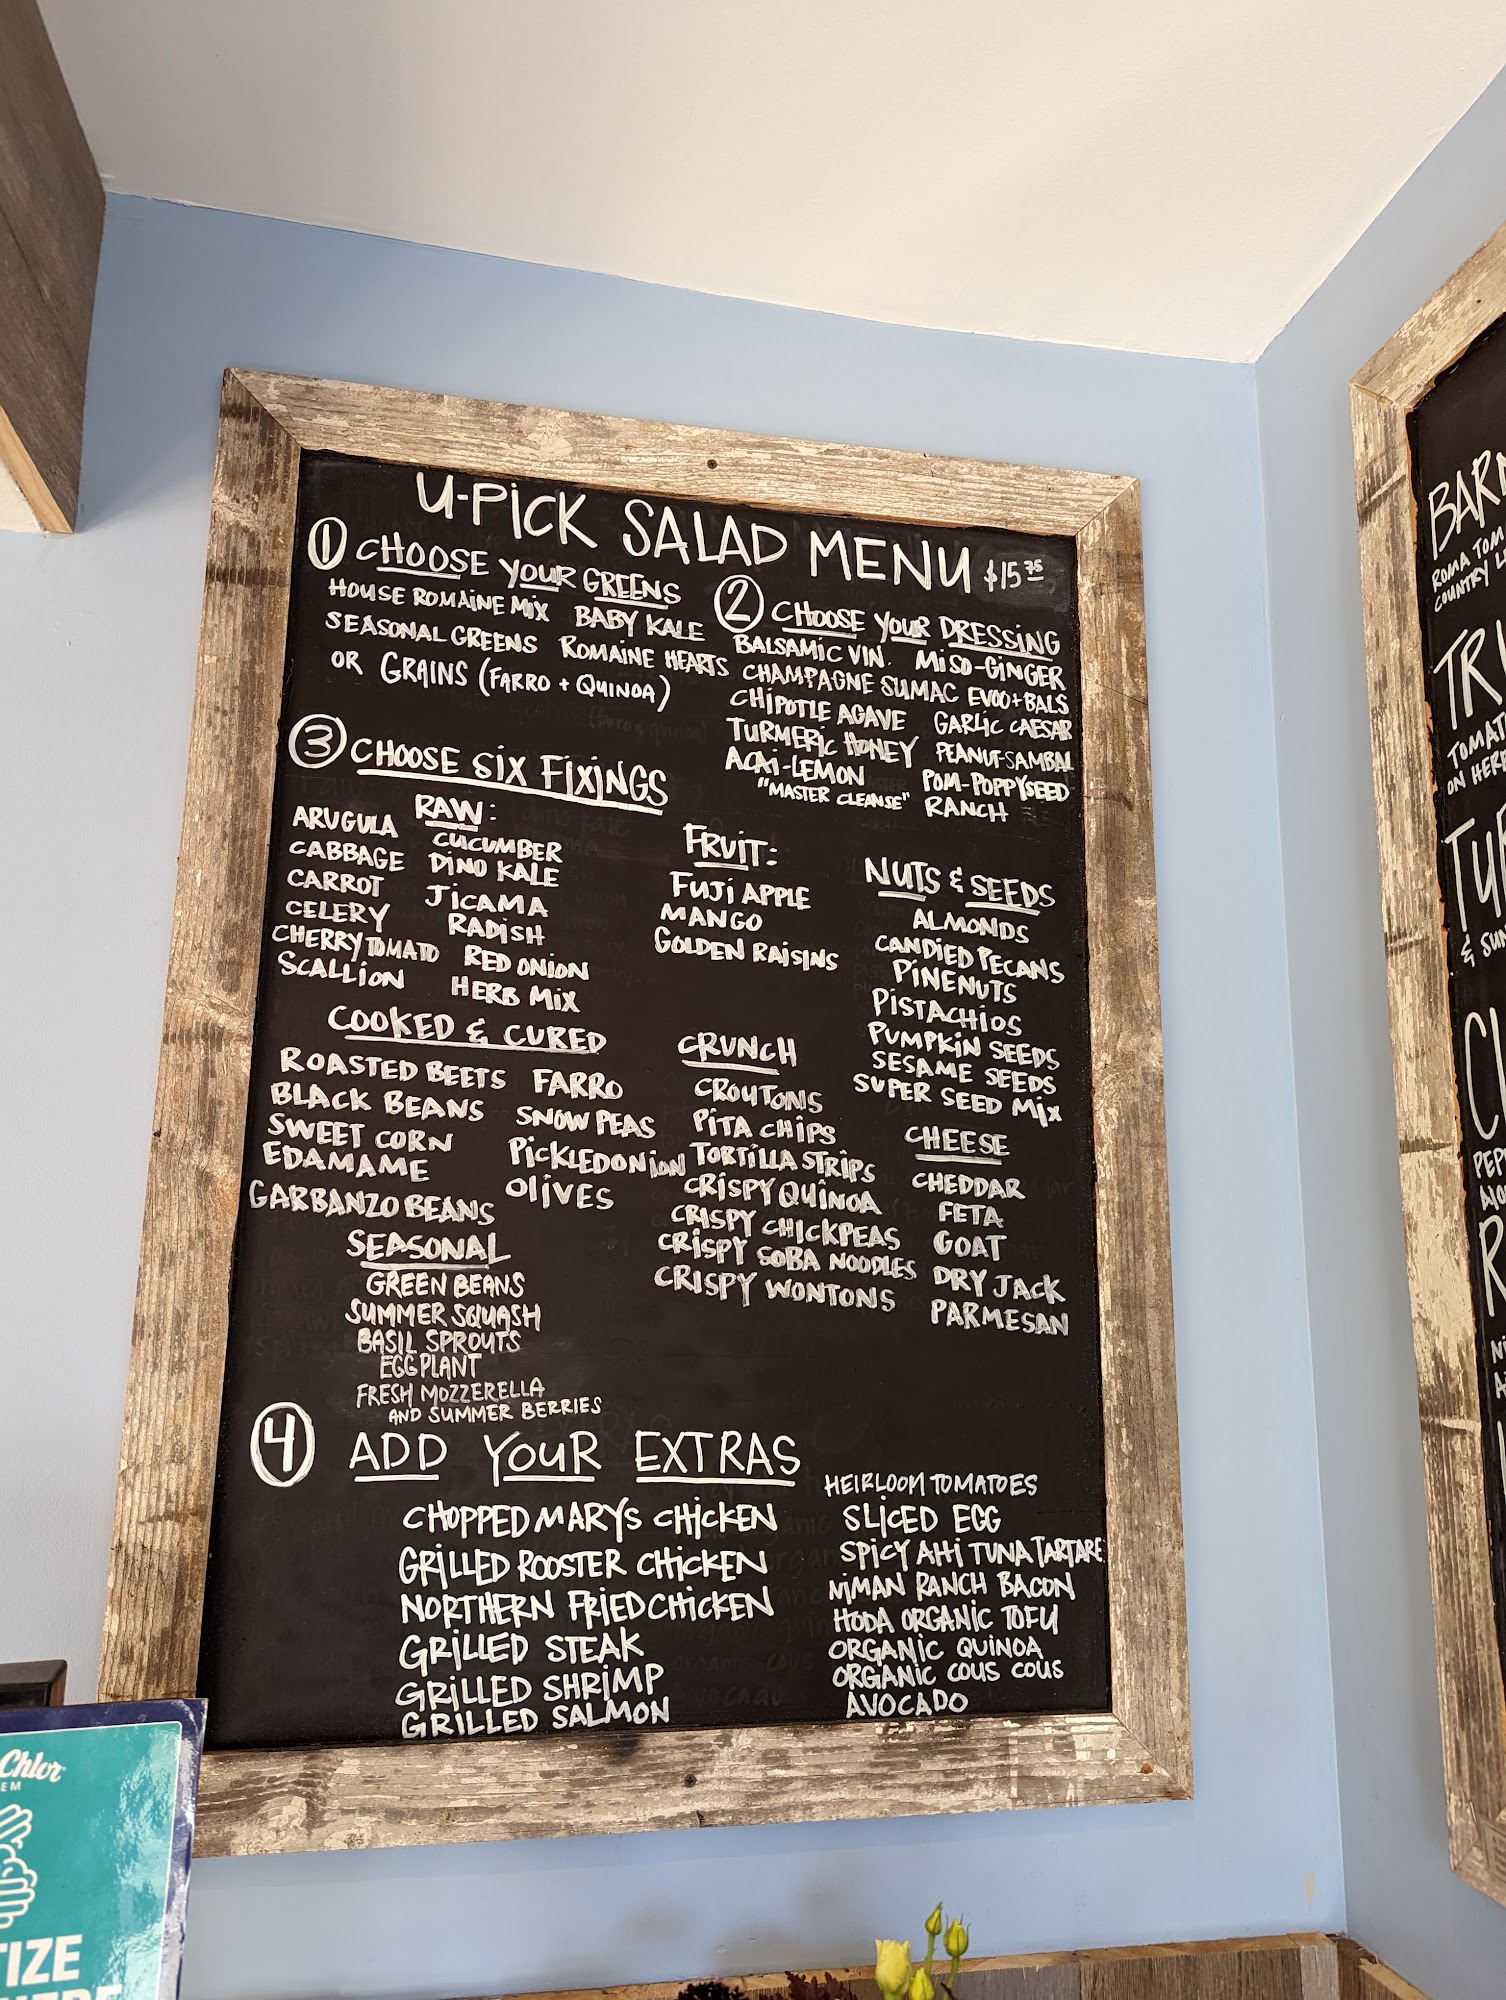 U-PICK SALAD MENU $15.75
① CHOOSE YOUR GREENS
HOUSE ROMAINE MIX BABY KALE
SEASONAL GREENS ROMAINE HEARTS
OR GRAINS (FARRO + QUINOA)
② CHOOSE YOUR DRESSING
BALSAMIC VIN. MISO-GINGER
CHAMPAGNE SUMAC EVOO+BALS
CHIPOTLE AGAVE GARLIC CAESAR
TURMERIC HONEY PEANUT-SAMBAL
ACAI-LEMON POM-POPPYSEED
"MASTER CLEANSE" RANCH
③ CHOOSE SIX FIXINGS
RAW:
ARUGULA CUCUMBER
CABBAGE DINO KALE
CARROT JICAMA
CELERY RADISH
CHERRY TOMATO RED ONION
SCALLION HERB MIX
FRUIT:
FUJI APPLE
MANGO
GOLDEN RAISINS
NUTS & SEEDS
ALMONDS
CANDIED PECANS
PINENUTS
PISTACHIOS
PUMPKIN SEEDS
SESAME SEEDS
SUPER SEED MIX
COOKED & CURED
ROASTED BEETS FARRO
BLACK BEANS SNOW PEAS
SWEET CORN PICKLED ONION
EDAMAME OLIVES
GARBANZO BEANS
CRUNCH
CROUTONS
PITA CHIPS
TORTILLA STRIPS
CRISPY QUINOA
CRISPY CHICKPEAS
CRISPY SOBA NOODLES
CRISPY WONTONS
CHEESE
CHEDDAR
FETA
GOAT
DRY JACK
PARMESAN
SEASONAL
GREEN BEANS
SUMMER SQUASH
BASIL SPROUTS
EGGPLANT
FRESH MOZZERELLA
AND SUMMER BERRIES
④ ADD YOUR EXTRAS
CHOPPED MARYS CHICKEN
GRILLED ROOSTER CHICKEN
NORTHERN FRIED CHICKEN
GRILLED STEAK
GRILLED SHRIMP
GRILLED SALMON
HEIRLOOM TOMATOES
SLICED EGG
SPICY AHI TUNA TARTARE
NIMAN RANCH BACON
HODA ORGANIC TOFU
ORGANIC QUINOA
ORGANIC COUS COUS
AVOCADO
ROMA TOM
COUNTRY
ON HER
Chlor
TIZE